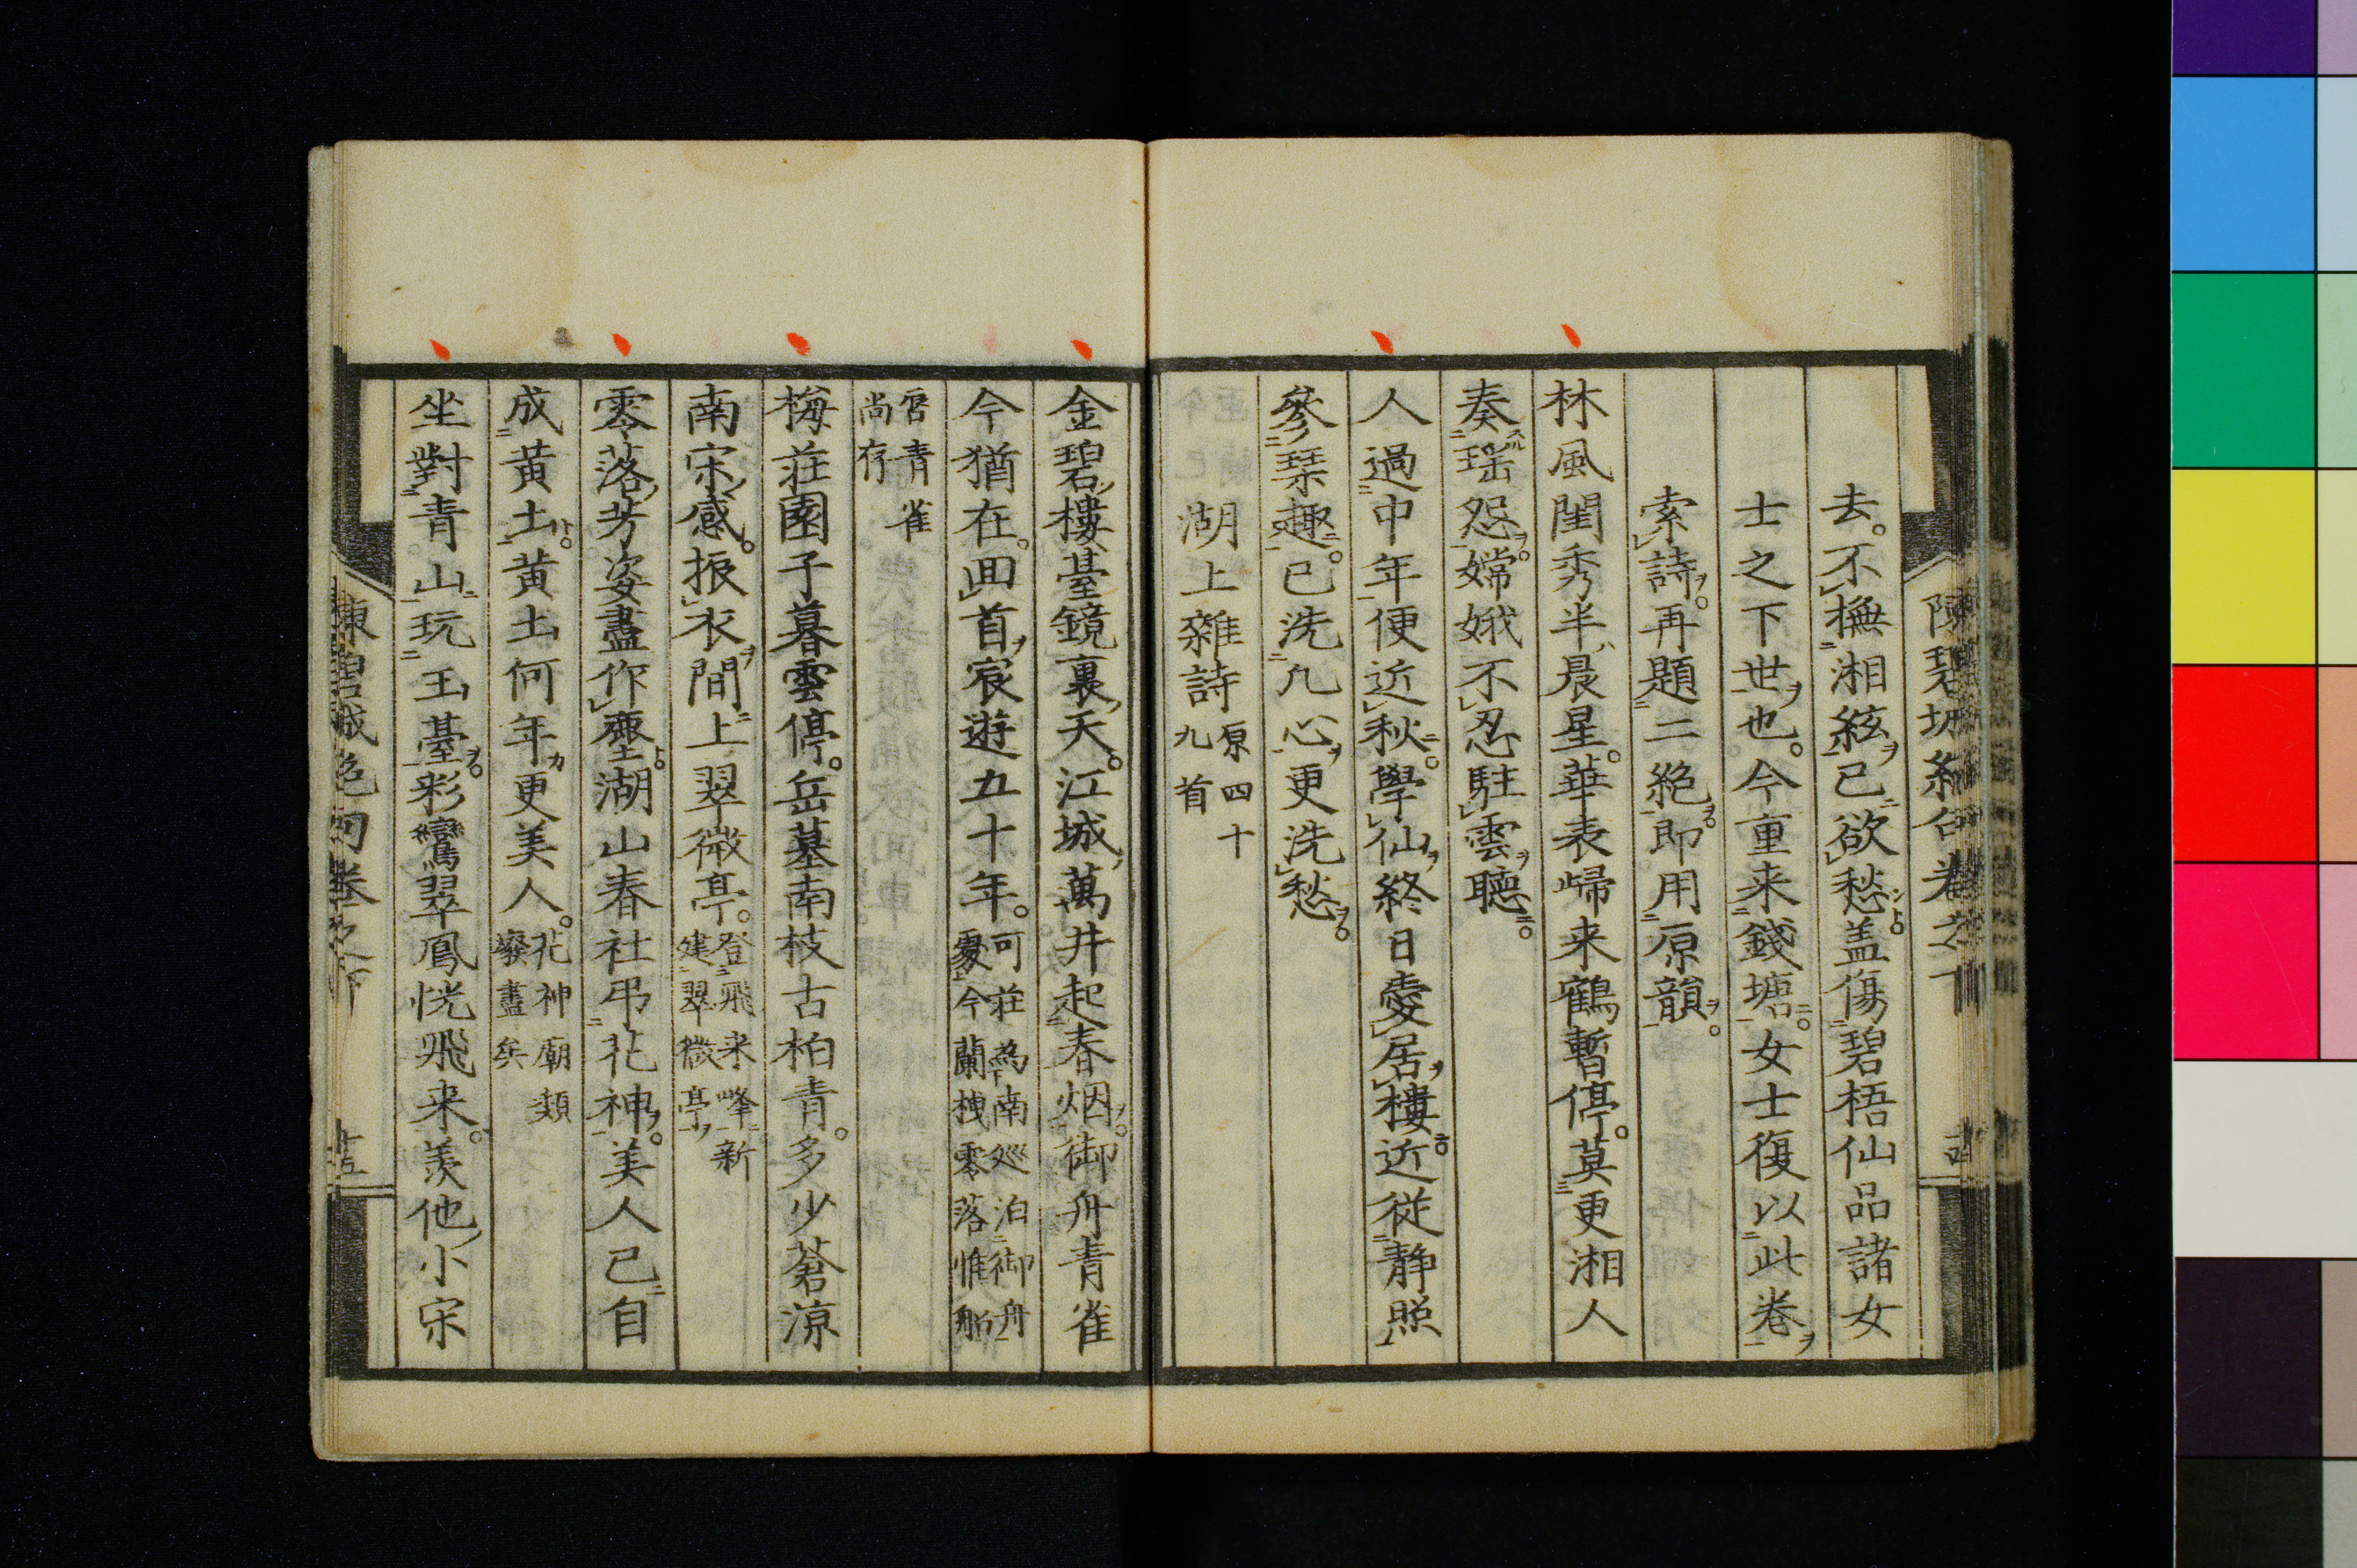 陳碧城絶句卷之下
去。不撫湘絃已欲愁。盖傷碧梧仙品諸女
士之下世也。今重来錢塘。女士復以此卷
索詩。再題二絶。即用原韻。
林風閨秀半晨星。華表歸来鶴暫停。莫更湘人
奏瑶怨。嫦娥不忍駐雲聽。
人過中年便近秋。學仙終日愛居樓。近從静照
參琹趣。已洗凡心更洗愁。
湖上雜詩 原四十九首
金碧樓臺鏡裏天。江城萬井起春烟。御舟青雀
今猶在。囬首宸遊五十年。可莊為南巡泊御舟
處今蘭橈零落惟船
窓青雀
尚存
梅莊園子暮雲停。岳墓南枝古柏青。多少蒼凉
南宋感。振衣間上翠微亭。登飛来峰新
建翠微亭
零落芳姿盡作塵。湖山春社弔花神。美人已自
成黄土。黄土何年更美人。花神廟頽
廢盡矣
坐對青山玩玉臺。彩鸞翠鳳恍飛来。羨他小宋
陳碧城絶句卷之下 十五